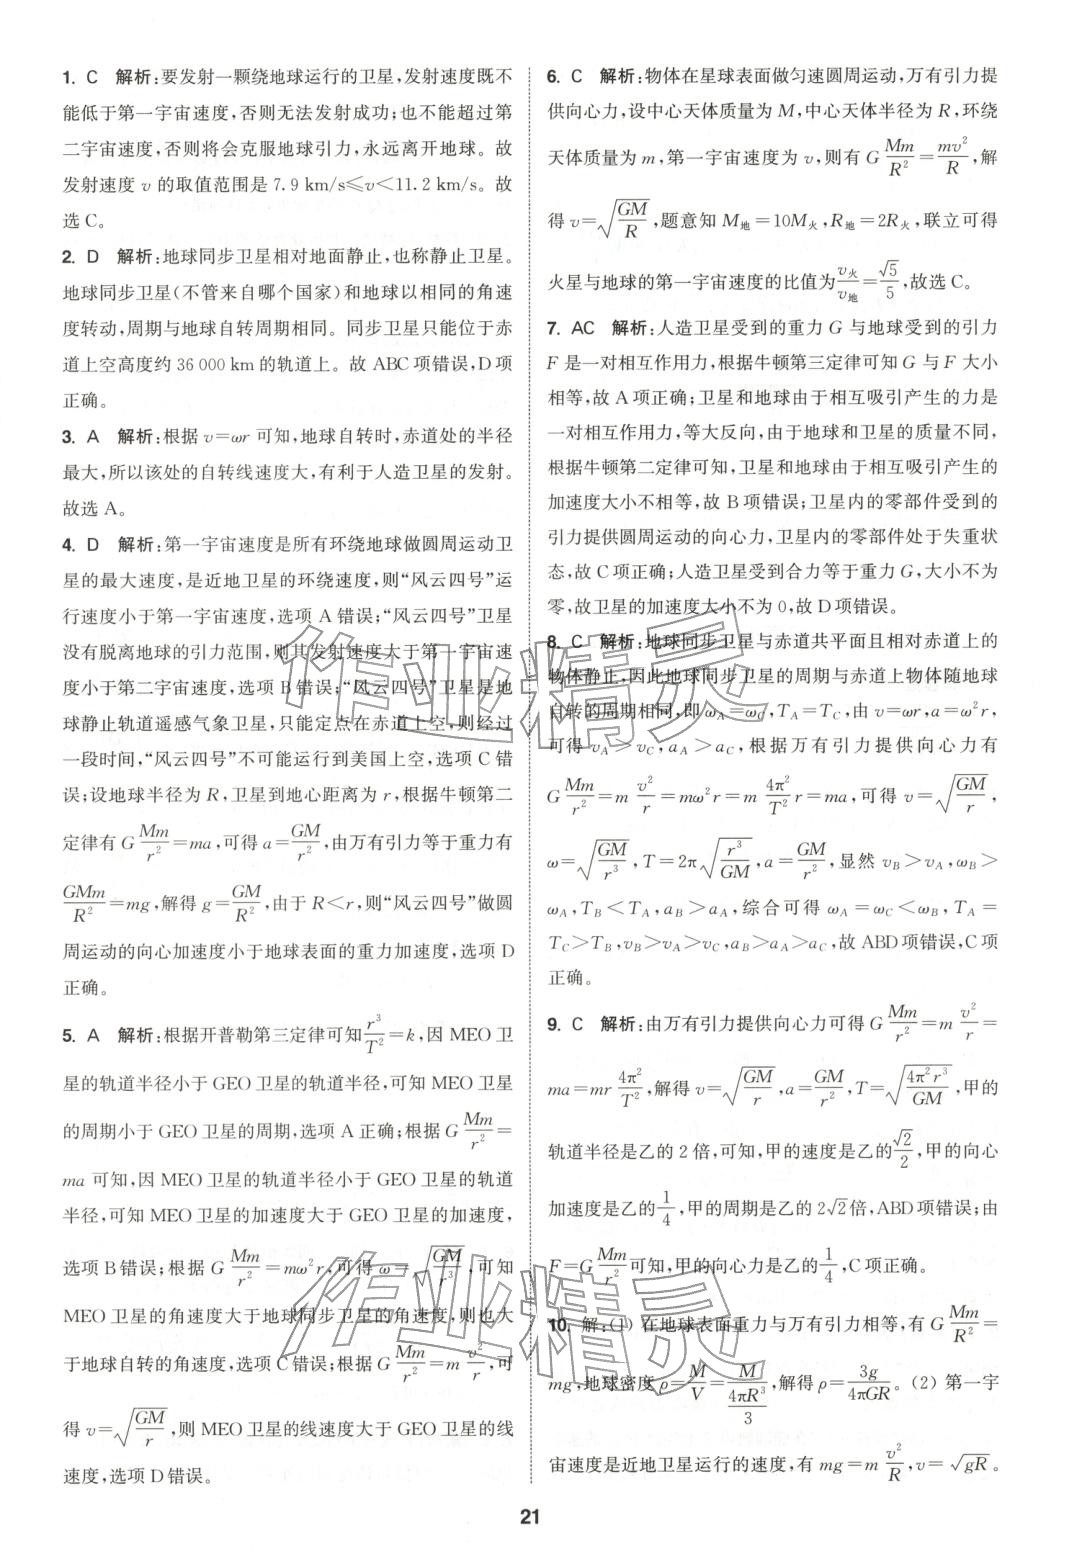 1. C 解析:要发射一颗绕地球运行的卫星,发射速度既不
能低于第一宇宙速度,否则无法发射成功;也不能超过第
二宇宙速度,否则将会克服地球引力,永远离开地球。故
发射速度 v 的取值范围是 7.9 km/s≤v<11.2 km/s。故
选 C。
2. D 解析:地球同步卫星相对地面静止,也称静止卫星。
地球同步卫星(不管来自哪个国家)和地球以相同的角速
度转动,周期与地球自转周期相同。同步卫星只能位于赤
道上空高度约 36 000 km 的轨道上。故 ABC 项错误,D 项
正确。
3. A 解析:根据 v=ωr 可知,地球自转时,赤道处的半径
最大,所以该处的自转线速度大,有利于人造卫星的发射。
故选 A。
4. D 解析:第一宇宙速度是所有环绕地球做圆周运动卫
星的最大速度,是近地卫星的环绕速度,则“风云四号”运
行速度小于第一宇宙速度,选项 A 错误;“风云四号”卫星
没有脱离地球的引力范围,则其发射速度大于第一宇宙速
度小于第二宇宙速度,选项 B 错误;“风云四号”卫星是地
球静止轨道遥感气象卫星,只能定点在赤道上空,则经过
一段时间,“风云四号”不可能运行到美国上空,选项 C 错
误;设地球半径为 R,卫星到地心距离为 r,根据牛顿第二
定律有 G Mm/r²=ma,可得 a=GM/r²,由万有引力等于重力有
GMm/R²=mg,解得 g=GM/R²,由于 R<r,则“风云四号”做圆
周运动的向心加速度小于地球表面的重力加速度,选项 D
正确。
5. A 解析:根据开普勒第三定律可知 r³/T²=k,因 MEO 卫
星的轨道半径小于 GEO 卫星的轨道半径,可知 MEO 卫星
的周期小于 GEO 卫星的周期,选项 A 正确;根据 G Mm/r²=
ma 可知,因 MEO 卫星的轨道半径小于 GEO 卫星的轨道
半径,可知 MEO 卫星的加速度大于 GEO 卫星的加速度,
选项 B 错误;根据 G Mm/r²=mω²r,可得 ω=√(GM/r³),可知
MEO 卫星的角速度大于地球同步卫星的角速度,则也大
于地球自转的角速度,选项 C 错误;根据 G Mm/r²=m v²/r,可
得 v=√(GM/r),则 MEO 卫星的线速度大于 GEO 卫星的线
速度,选项 D 错误。
6. C 解析:物体在星球表面做匀速圆周运动,万有引力提
供向心力,设中心天体质量为 M,中心天体半径为 R,环绕
天体质量为 m,第一宇宙速度为 v,则有 G Mm/R²=mv²/R,解
得 v=√(GM/R),题意知 M地=10M火,R地=2R火,联立可得
火星与地球的第一宇宙速度的比值为 v火/v地=√5/5,故选 C。
7. AC 解析:人造卫星受到的重力 G 与地球受到的引力
F 是一对相互作用力,根据牛顿第三定律可知 G 与 F 大小
相等,故 A 项正确;卫星和地球由于相互吸引产生的力是
一对相互作用力,等大反向,由于地球和卫星的质量不同,
根据牛顿第二定律可知,卫星和地球由于相互吸引产生的
加速度大小不相等,故 B 项错误;卫星内的零部件受到的
引力提供圆周运动的向心力,卫星内的零部件处于失重状
态,故 C 项正确;人造卫星受到合力等于重力 G,大小不为
零,故卫星的加速度大小不为 0,故 D 项错误。
8. C 解析:地球同步卫星与赤道共平面且相对赤道上的
物体静止,因此地球同步卫星的周期与赤道上物体随地球
自转的周期相同,即 ωA=ωC,TA=TC,由 v=ωr,a=ω²r,
可得 vA>vC,aA>aC,根据万有引力提供向心力有
G Mm/r²=m v²/r=mω²r=m 4π²/T² r=ma,可得 v=√(GM/r),
ω=√(GM/r³),T=2π√(r³/GM),a=GM/r²,显然 vB>vA,ωB>
ωA,TB<TA,aB>aA,综合可得 ωA=ωC<ωB,TA=
TC>TB,vB>vA>vC,aB>aA>aC,故 ABD 项错误,C 项
正确。
9. C 解析:由万有引力提供向心力可得 G Mm/r²=m v²/r=
ma=mr 4π²/T²,解得 v=√(GM/r),a=GM/r²,T=√(4π²r³/GM),甲的
轨道半径是乙的 2 倍,可知,甲的速度是乙的 √2/2,甲的向心
加速度是乙的 1/4,甲的周期是乙的 2√2倍,ABD 项错误;由
F=G Mm/r² 可知,甲的向心力是乙的 1/4,C 项正确。
10. 解:(1) 在地球表面重力与万有引力相等,有 G Mm/R²=
mg,地球密度 ρ=M/V=M/(4πR³/3),解得 ρ=3g/4πGR。(2) 第一宇
宙速度是近地卫星运行的速度,有 mg=m v²/R,v=√gR。
21
作业精灵
作业精灵